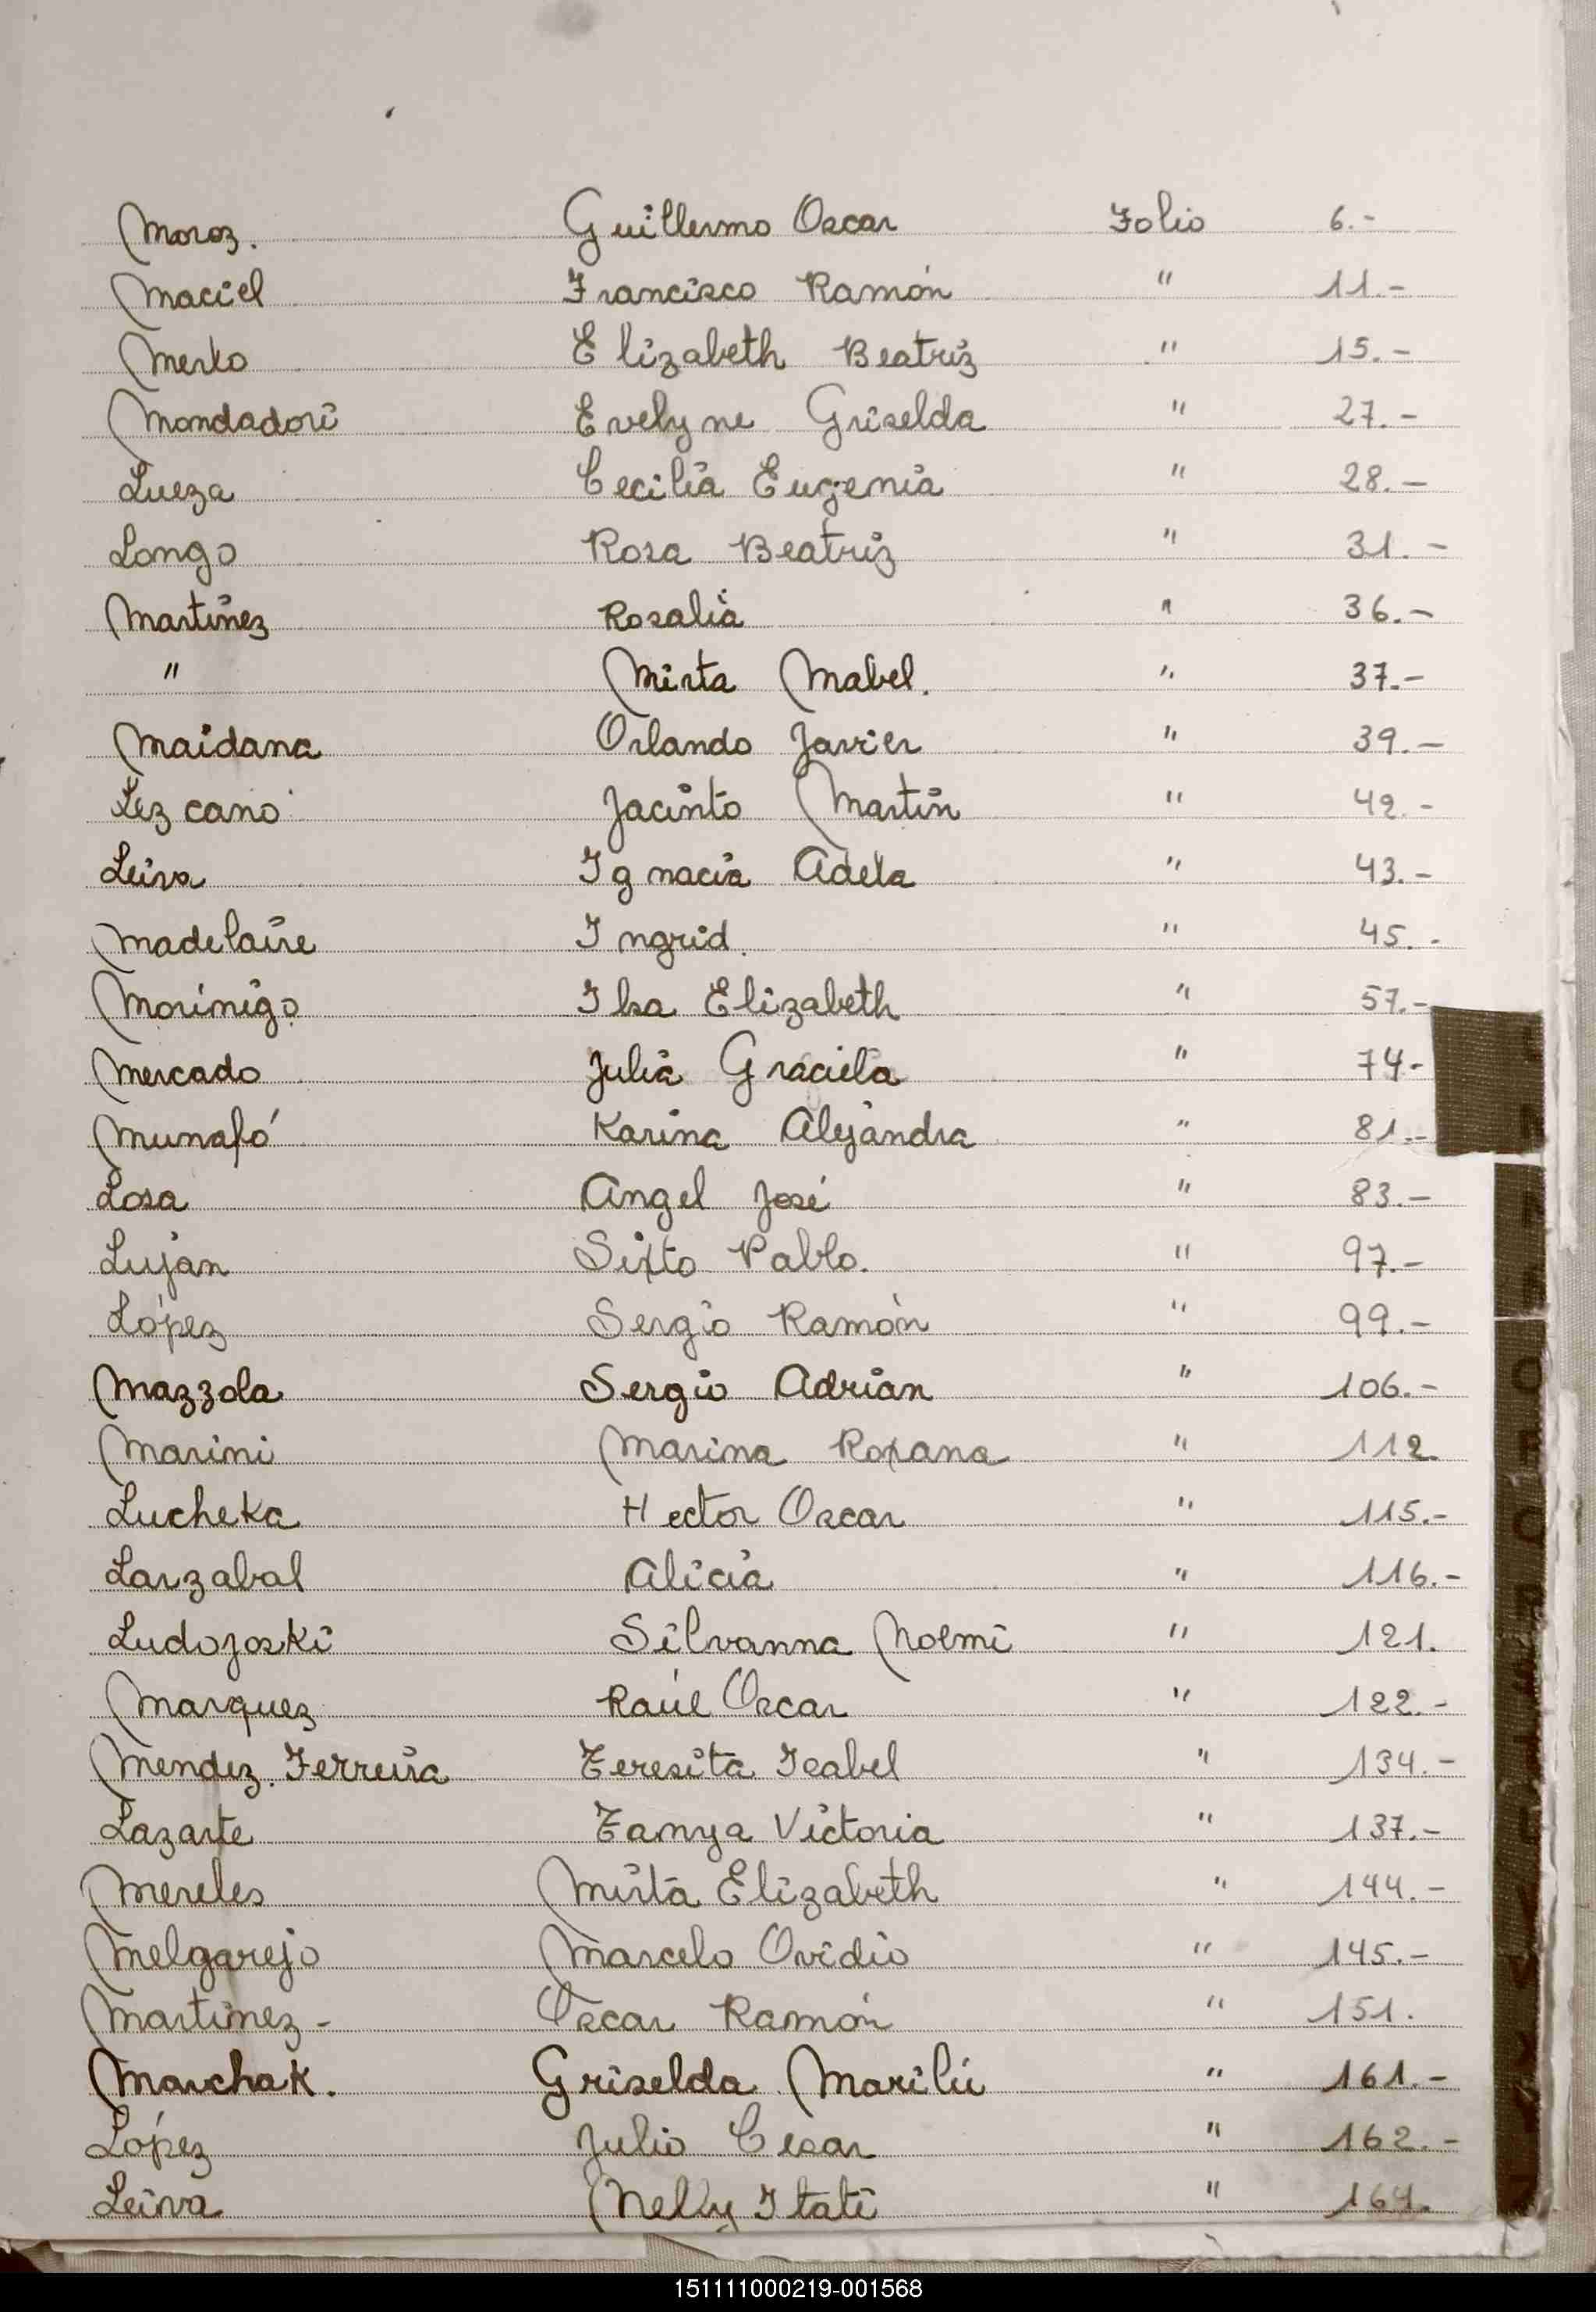 Moroz. Guillermo Oscar Folio 6.-
Maciel Francisco Ramón " 11.-
Merko Elizabeth Beatriz " 15.-
Mondadori Evelyne Griselda " 27.-
Lueza Cecilia Eugenia " 28.-
Longo Rosa Beatriz " 31.-
Martinez Rosalia " 36.-
" Mirta Mabel. " 37.-
Maidana Orlando Javier " 39.-
Lezcano Jacinto Martin " 42.-
Leiva Ignacia Adela " 43.-
Madelaire Ingrid. " 45.-
Morinigo Ilsa Elizabeth " 57.-
Mercado Julia Graciela " 74-
Munafó Karina Alejandra " 81.-
Losa Angel José " 83.-
Lujan Sixto Pablo. " 97.-
López Sergio Ramón " 99.-
Mazzola Sergio Adrian " 106.-
Marini Marina Roxana " 112.
Lucheka Hector Oscar " 115.-
Larzabal Alicia " 116.-
Ludojoski Silvanna Noemi " 121.
Marquez Raúl Oscar " 122.-
Mendez. Ferreira Teresita Isabel " 134.-
Lazarte Tanya Victoria " 137.-
Mereles Mirta Elizabeth " 144.-
Melgarejo Marcelo Ovidio " 145.-
Martinez - Oscar Ramón " 151.
Marchak. Griselda Marilú " 161.-
López Julio Cesar " 162.-
Leiva Nelly Itati " 164.
151111000219-001568